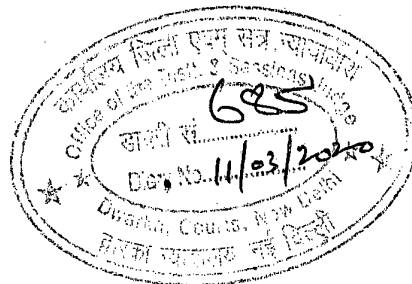 कार्यालय जिला एवम् सत्र न्यायाधीश
Office of the Distt. & Sessions Judge
डायरी सं.............
685
Diary No. 11/03/2020
Dwarka, Courts, New Delhi
द्वारका न्यायालय नई दिल्ली